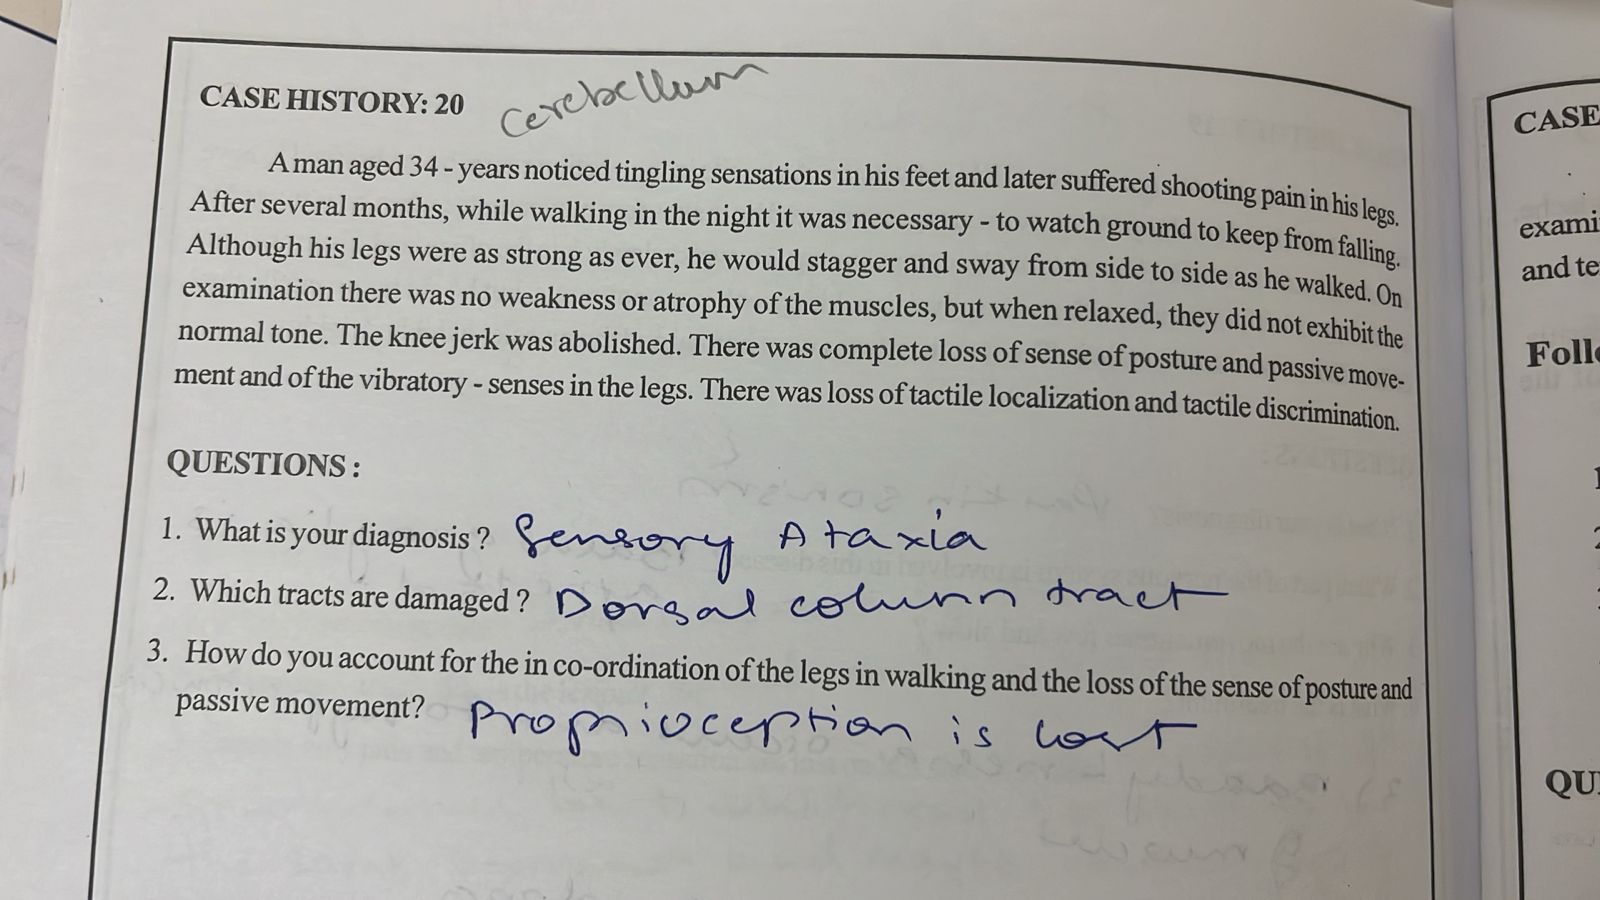 CASE HISTORY: 20 Cerebellum
A man aged 34 - years noticed tingling sensations in his feet and later suffered shooting pain in his legs.
After several months, while walking in the night it was necessary - to watch ground to keep from falling.
Although his legs were as strong as ever, he would stagger and sway from side to side as he walked. On
examination there was no weakness or atrophy of the muscles, but when relaxed, they did not exhibit the
normal tone. The knee jerk was abolished. There was complete loss of sense of posture and passive move-
ment and of the vibratory - senses in the legs. There was loss of tactile localization and tactile discrimination.
QUESTIONS :
1. What is your diagnosis ? Sensory Ataxia
2. Which tracts are damaged ? Dorsal column tract
3. How do you account for the in co-ordination of the legs in walking and the loss of the sense of posture and
passive movement? Proprioception is lost
CASE
exami
and te
Foll
QU